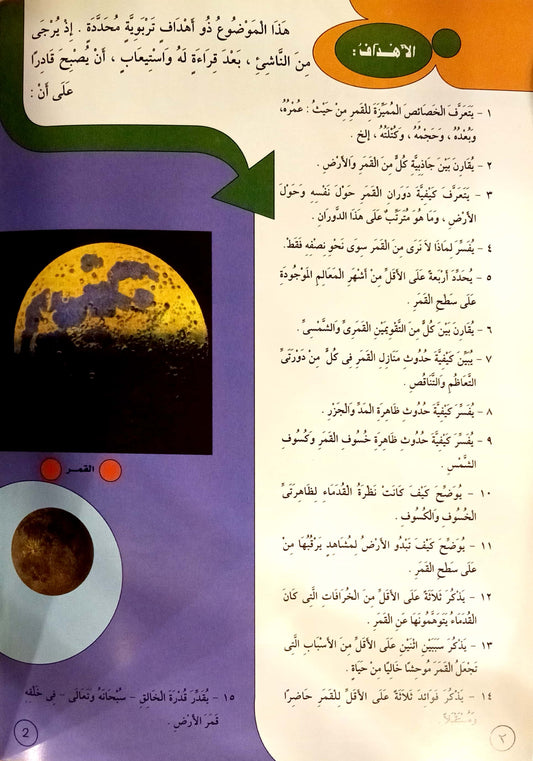 الأهداف :
هَذَا الْمَوْضُوعُ ذُو أَهْدَافٍ تَرْبَوِيَّةٍ مُحَدَّدَةٍ . إِذْ يُرْجَى
مِنَ النَّاشِئِ ، بَعْدَ قِرَاءَةٍ لَهُ وَاسْتِيعَابٍ ، أَنْ يُصْبِحَ قَادِرًا
عَلَى أَنْ :
١ - يَتَعَرَّفَ الْخَصَائِصَ الْمُمَيِّزَةَ لِلْقَمَرِ مِنْ حَيْثُ : عُمْرُهُ،
وَبُعْدُهُ ، وَحَجْمُهُ ، وَكُتْلَتُهُ ، إلخ .
٢ - يُقَارِنَ بَيْنَ جَاذِبِيَّةِ كُلٍّ مِنَ الْقَمَرِ وَالْأَرْضِ .
٣ - يَتَعَرَّفَ كَيْفِيَّةَ دَوَرَانِ الْقَمَرِ حَوْلَ نَفْسِهِ وَحَوْلَ
الْأَرْضِ ، وَمَا هُوَ مُتَرَتِّبٌ عَلَى هَذَا الدَّوَرَانِ .
٤ - يُفَسِّرَ لِمَاذَا لَا نَرَى مِنَ الْقَمَرِ سِوَى نَحْوِ نِصْفِهِ فَقَطْ.
٥ - يُحَدِّدَ أَرْبَعَةً عَلَى الْأَقَلِّ مِنْ أَشْهَرِ الْمَعَالِمِ الْمَوْجُودَةِ
عَلَى سَطْحِ الْقَمَرِ .
٦ - يُقَارِنَ بَيْنَ كُلٍّ مِنَ التَّقْوِيمَيْنِ الْقَمَرِىِّ وَالشَّمْسِىِّ .
٧ - يُبَيِّنَ كَيْفِيَّةَ حُدُوثِ مَنَازِلِ الْقَمَرِ فِى كُلٍّ مِنْ دَوْرَتَىِ
التَّعَاظُمِ وَالتَّنَاقُصِ .
٨ - يُفَسِّرَ كَيْفِيَّةَ حُدُوثِ ظَاهِرَةِ الْمَدِّ وَالْجَزْرِ .
٩ - يُفَسِّرَ كَيْفِيَّةَ حُدُوثِ ظَاهِرَةِ خُسُوفِ الْقَمَرِ وَكُسُوفِ
الشَّمْسِ .
١٠ - يُوَضِّحَ كَيْفَ كَانَتْ نَظْرَةُ الْقُدَمَاءِ لِظَاهِرَتَىِ
الْخُسُوفِ وَالْكُسُوفِ .
١١ - يُوَضِّحَ كَيْفَ تَبْدُو الْأَرْضُ لِمُشَاهِدٍ يَرْقُبُهَا مِنْ
عَلَى سَطْحِ الْقَمَرِ .
١٢ - يَذْكُرَ ثَلَاثَةً عَلَى الْأَقَلِّ مِنَ الْخُرَافَاتِ الَّتِى كَانَ
الْقُدَمَاءُ يَتَوَهَّمُونَهَا عَنِ الْقَمَرِ .
١٣ - يَذْكُرَ سَبَبَيْنِ اثْنَيْنِ عَلَى الْأَقَلِّ مِنَ الْأَسْبَابِ الَّتِى
تَجْعَلُ الْقَمَرَ مُوحِشًا خَالِيًا مِنْ حَيَاةٍ .
١٤ - يَذْكُرَ فَوَائِدَ ثَلَاثَةً عَلَى الْأَقَلِّ لِلْقَمَرِ حَاضِرًا
وَمُسْتَقْبَلاً .
١٥ - يُقَدِّرَ قُدْرَةَ الْخَالِقِ - سُبْحَانَهُ وَتَعَالَى - فِى خَلْقِهِ
قَمَرَ الْأَرْضِ .
القمر
٢
2